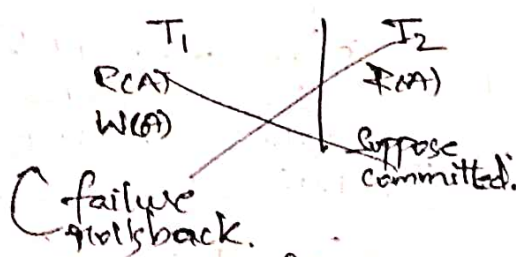 T1 T2
R(A) R(A)
W(A)
Suppose
committed.
failure
rollsback.